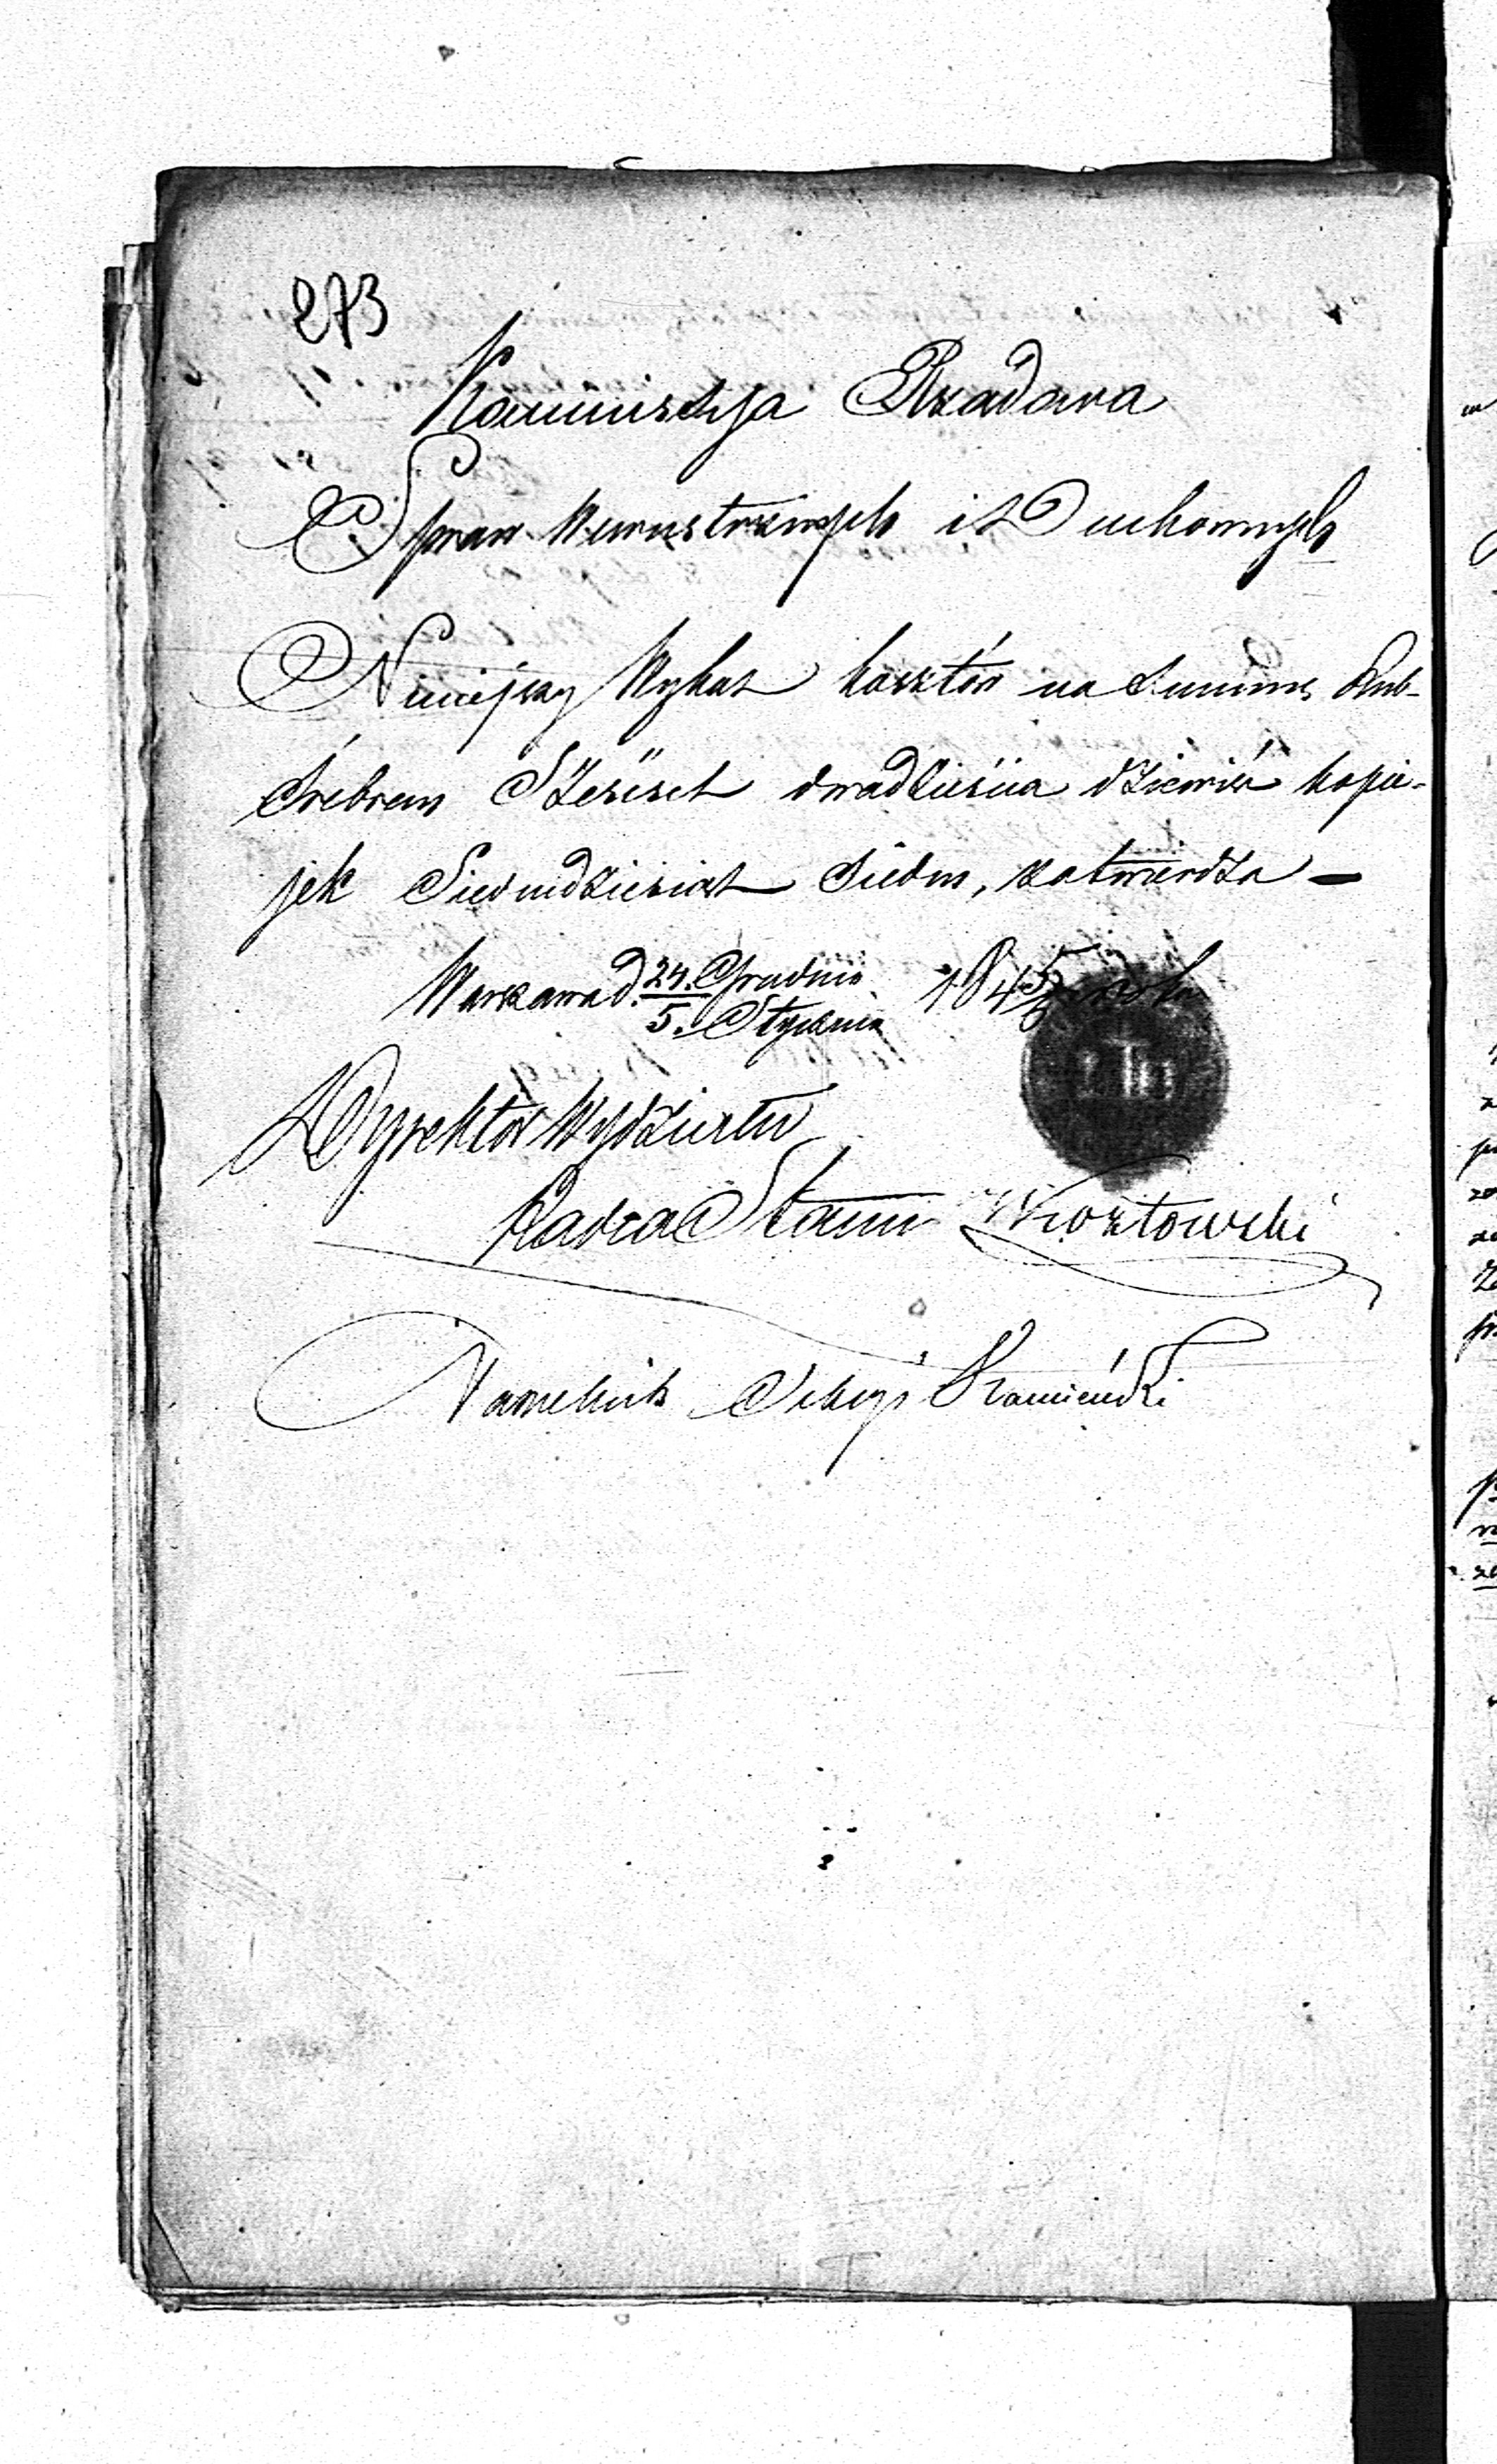 273
Kommissyja Rządowa
Spraw Wewnętrznych i Duchownych
Niniejszy Wykaz kosztów na summę Rub-
Srebrem Sześćset dwadzieścia dziewięć kopie-
jek Siedmdziesiąt siedm, zatwierdza —
Warszawa d. 24. Grudnia 1845
5. Stycznia 6 roku
Dyrektor Wydziału
Radca Stanu
Naczelnik Sekcyi Kamieński